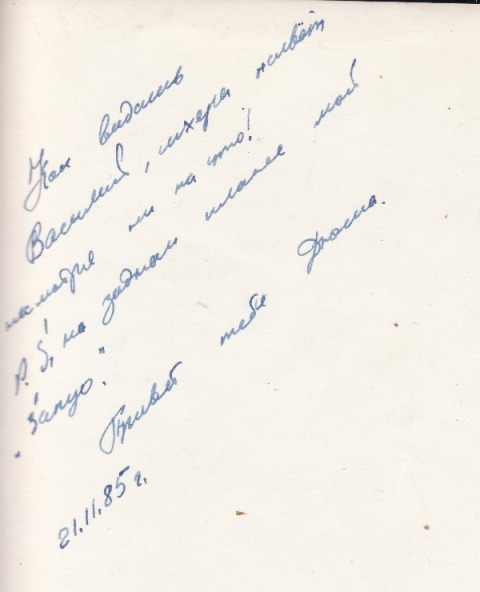 Как видишь
Василий, шхера живёт
несмотря ни на что!
P.S. на заднем плане мой
"Запуо."
Привет тебе Дюма.
21.11.85 г.